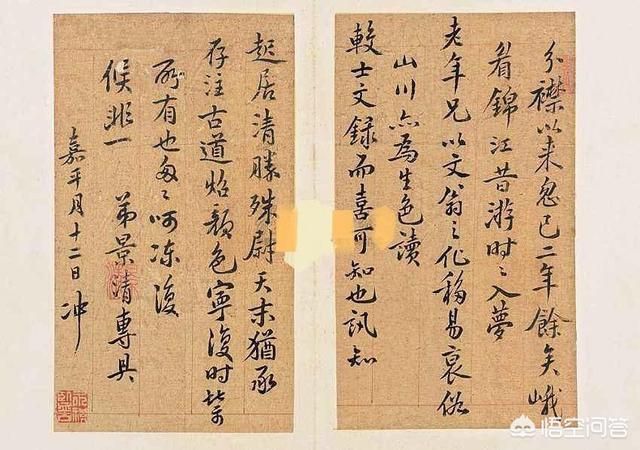 分襟以来忽已二年餘矣峨
眉錦江昔游時〻入夢
老年兄以文翁之化移易衰俗
山川亦為生色讀
較士文録而喜可知也訊知
起居清勝殊尉天末猶承
存注古道炤顏色寧復時輩
所有也匆〻呵凍復
候非一 弟景清專具
嘉平月十二日 冲
悟空问答